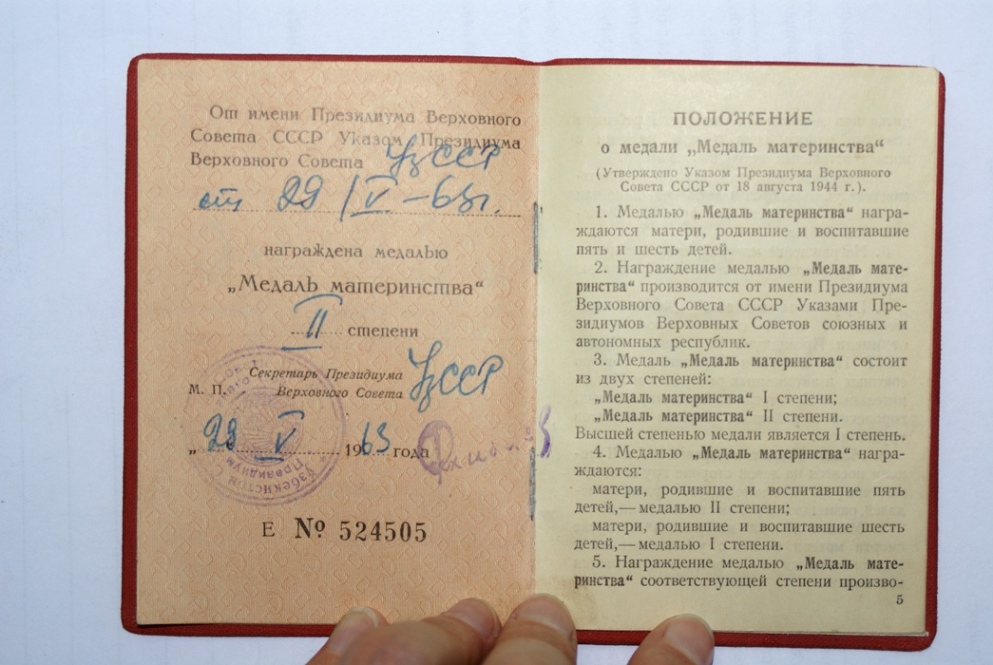 От имени Президиума Верховного
Совета СССР Указом Президиума
Верховного Совета УзССР
от 29/V-63г.
награждена медалью
„Медаль материнства“
II степени
Секретарь Президиума
М. П. Верховного Совета УзССР
„29 V 1963 года
Узбекистон
Президиум
Е № 524505
ПОЛОЖЕНИЕ
о медали „Медаль материнства“
(Утверждено Указом Президиума Верховного
Совета СССР от 18 августа 1944 г.).
1. Медалью „Медаль материнства“ награ-
ждаются матери, родившие и воспитавшие
пять и шесть детей.
2. Награждение медалью „Медаль мате-
ринства“ производится от имени Президиума
Верховного Совета СССР Указами Пре-
зидиумов Верховных Советов союзных и
автономных республик.
3. Медаль „Медаль материнства“ состоит
из двух степеней:
„Медаль материнства“ I степени;
„Медаль материнства“ II степени.
Высшей степенью медали является I степень.
4. Медалью „Медаль материнства“ награ-
ждаются:
матери, родившие и воспитавшие пять
детей,— медалью II степени;
матери, родившие и воспитавшие шесть
детей,— медалью I степени.
5. Награждение медалью „Медаль мате-
ринства“ соответствующей степени произво-
5